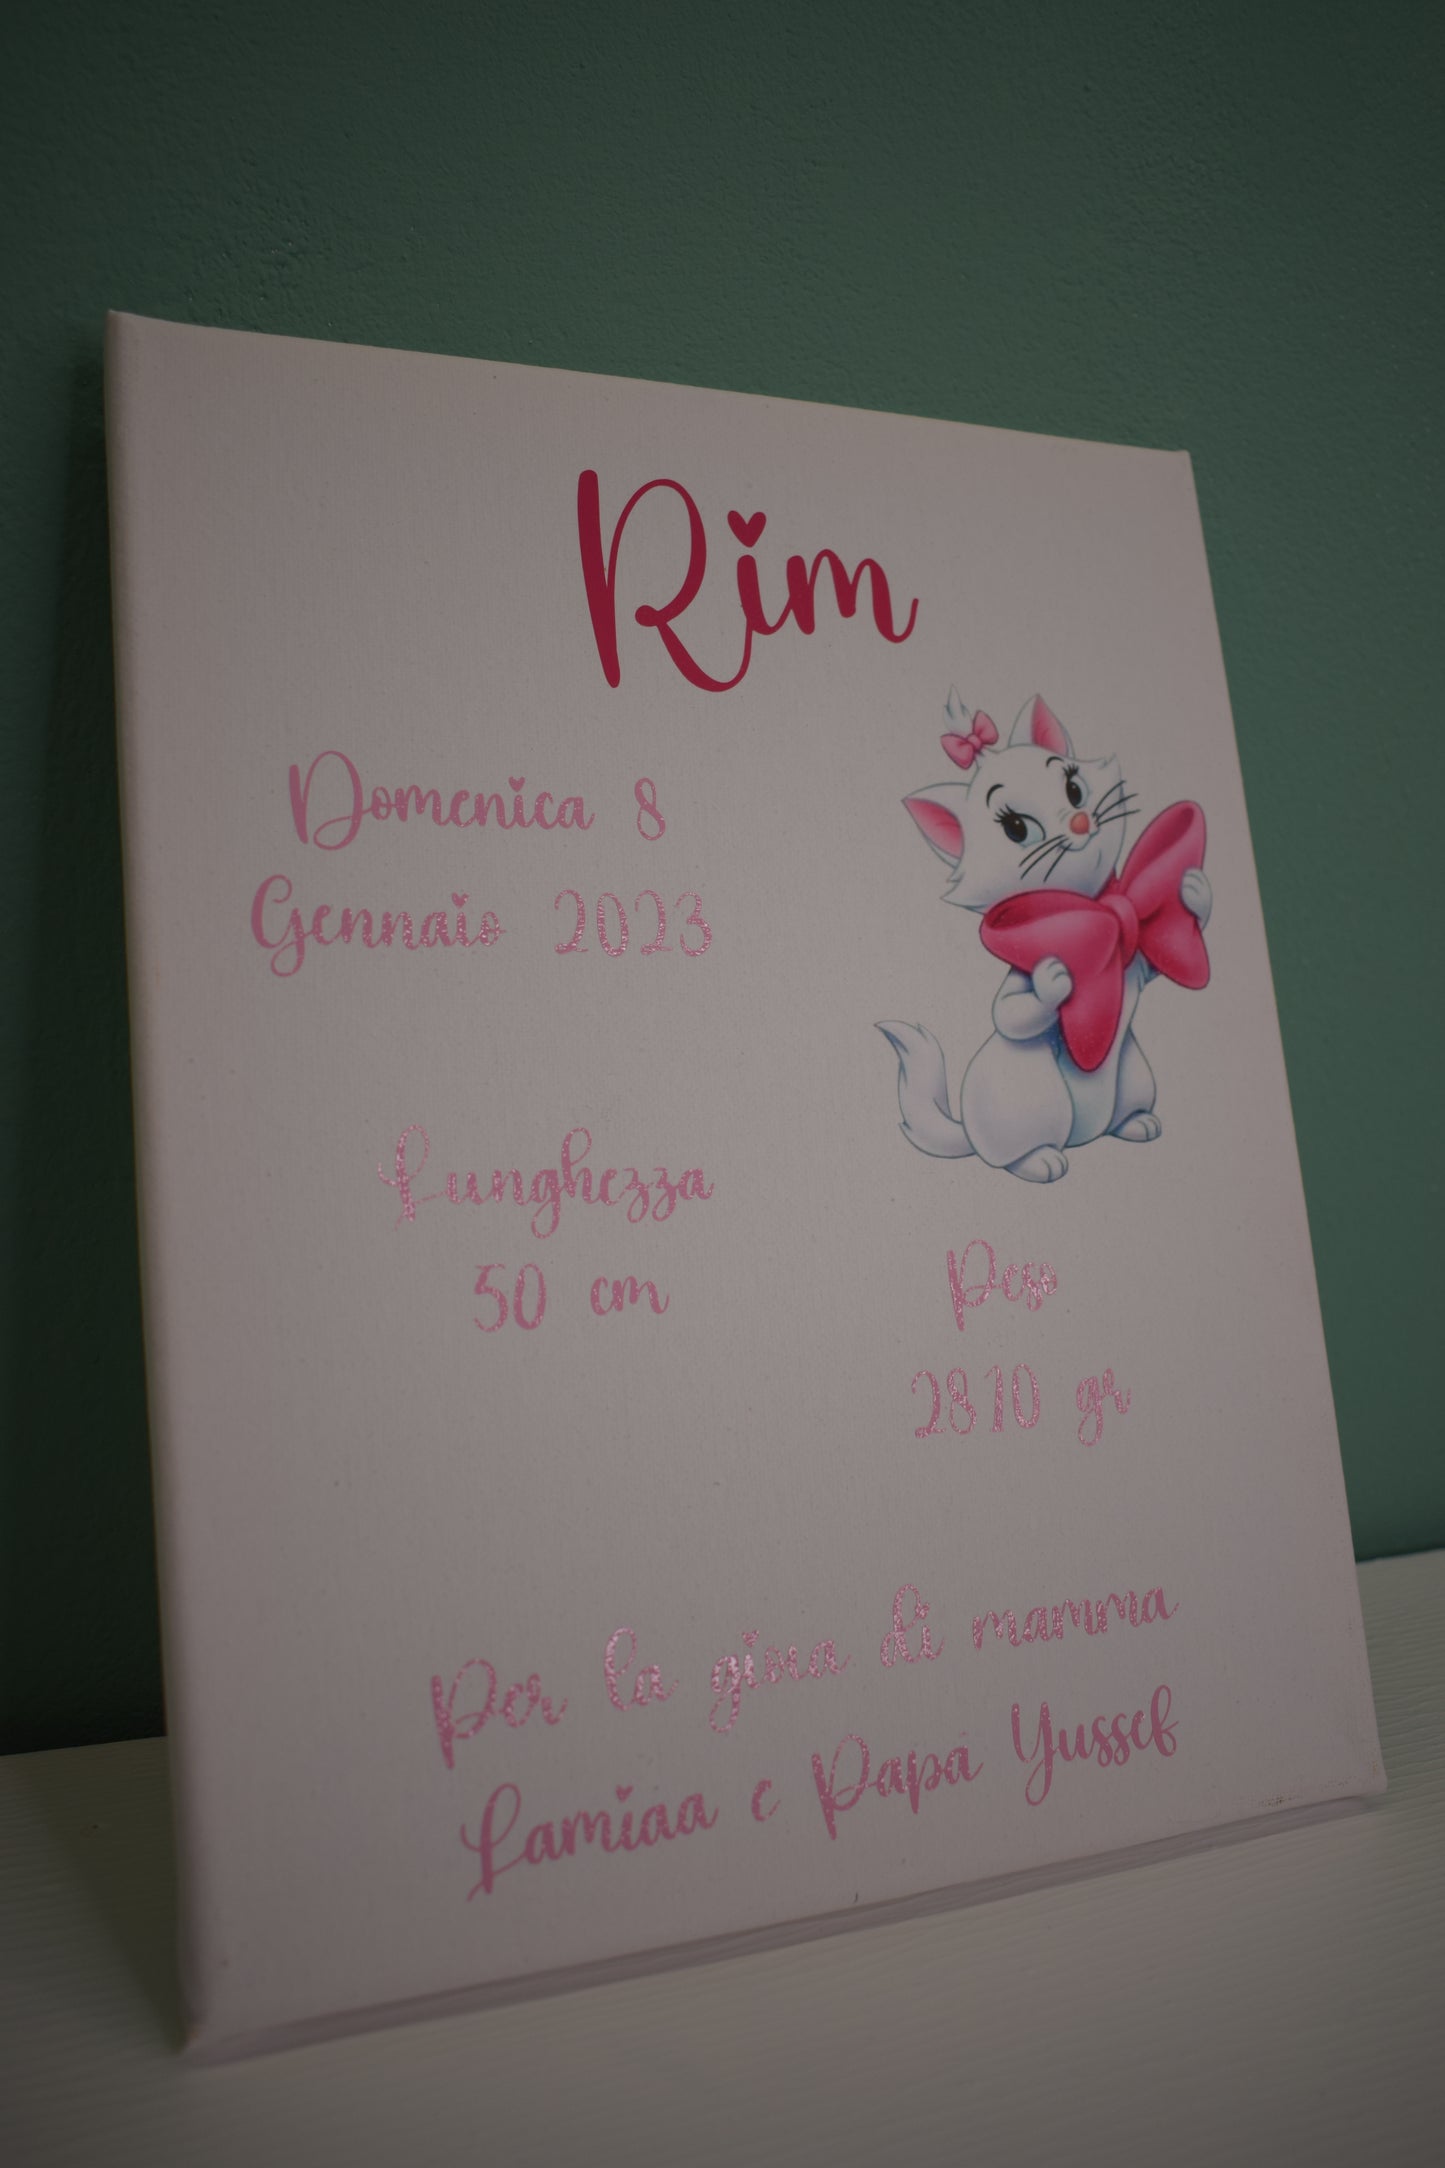 Rim
Domenica 8
Gennaio 2023
Lunghezza
50 cm
Peso
2810 gr
Per la gioia di mamma
Lamiaa e Papà Yussef